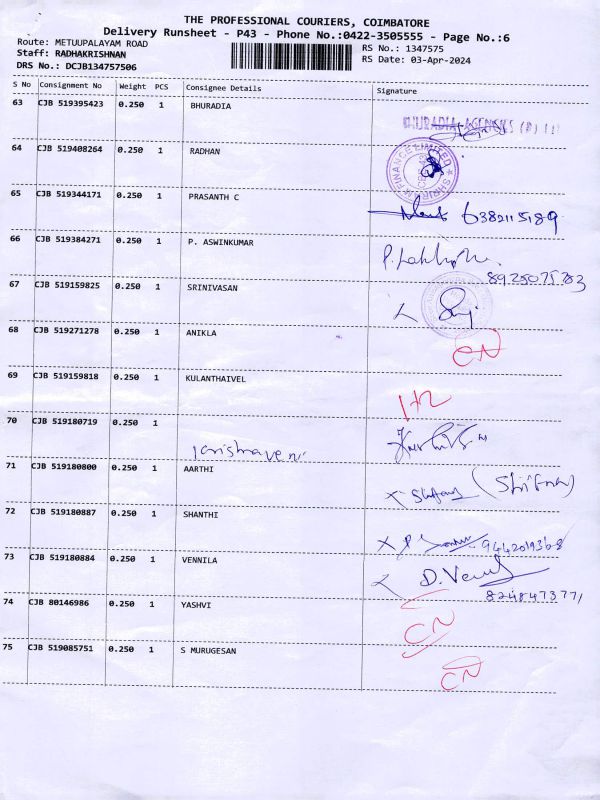 THE PROFESSIONAL COURIERS, COIMBATORE
Delivery Runsheet - P43 - Phone No.:0422-3505555 - Page No.:6
Route: METUUPALAYAM ROAD
Staff: RADHAKRISHNAN
DRS No.: DCJB134757506
RS No.: 1347575
RS Date: 03-Apr-2024
S No Consignment No Weight PCS Consignee Details Signature
63 CJB 519395423 0.250 1 BHURADIA
64 CJB 519408264 0.250 1 RADHAN SHRIRAM FINANCE LIMITED
65 CJB 519344171 0.250 1 PRASANTH C 6382115189
66 CJB 519384271 0.250 1 P. ASWINKUMAR
8925075783
67 CJB 519159825 0.250 1 SRINIVASAN
68 CJB 519271278 0.250 1 ANIKLA CN
69 CJB 519159818 0.250 1 KULANTHAIVEL
70 CJB 519180719 0.250 1
71 CJB 519180800 0.250 1 AARTHI
72 CJB 519180887 0.250 1 SHANTHI 9442019368
73 CJB 519180884 0.250 1 VENNILA D. Venni
8248473771
74 CJB 80146986 0.250 1 YASHVI CN
75 CJB 519085751 0.250 1 S MURUGESAN CN